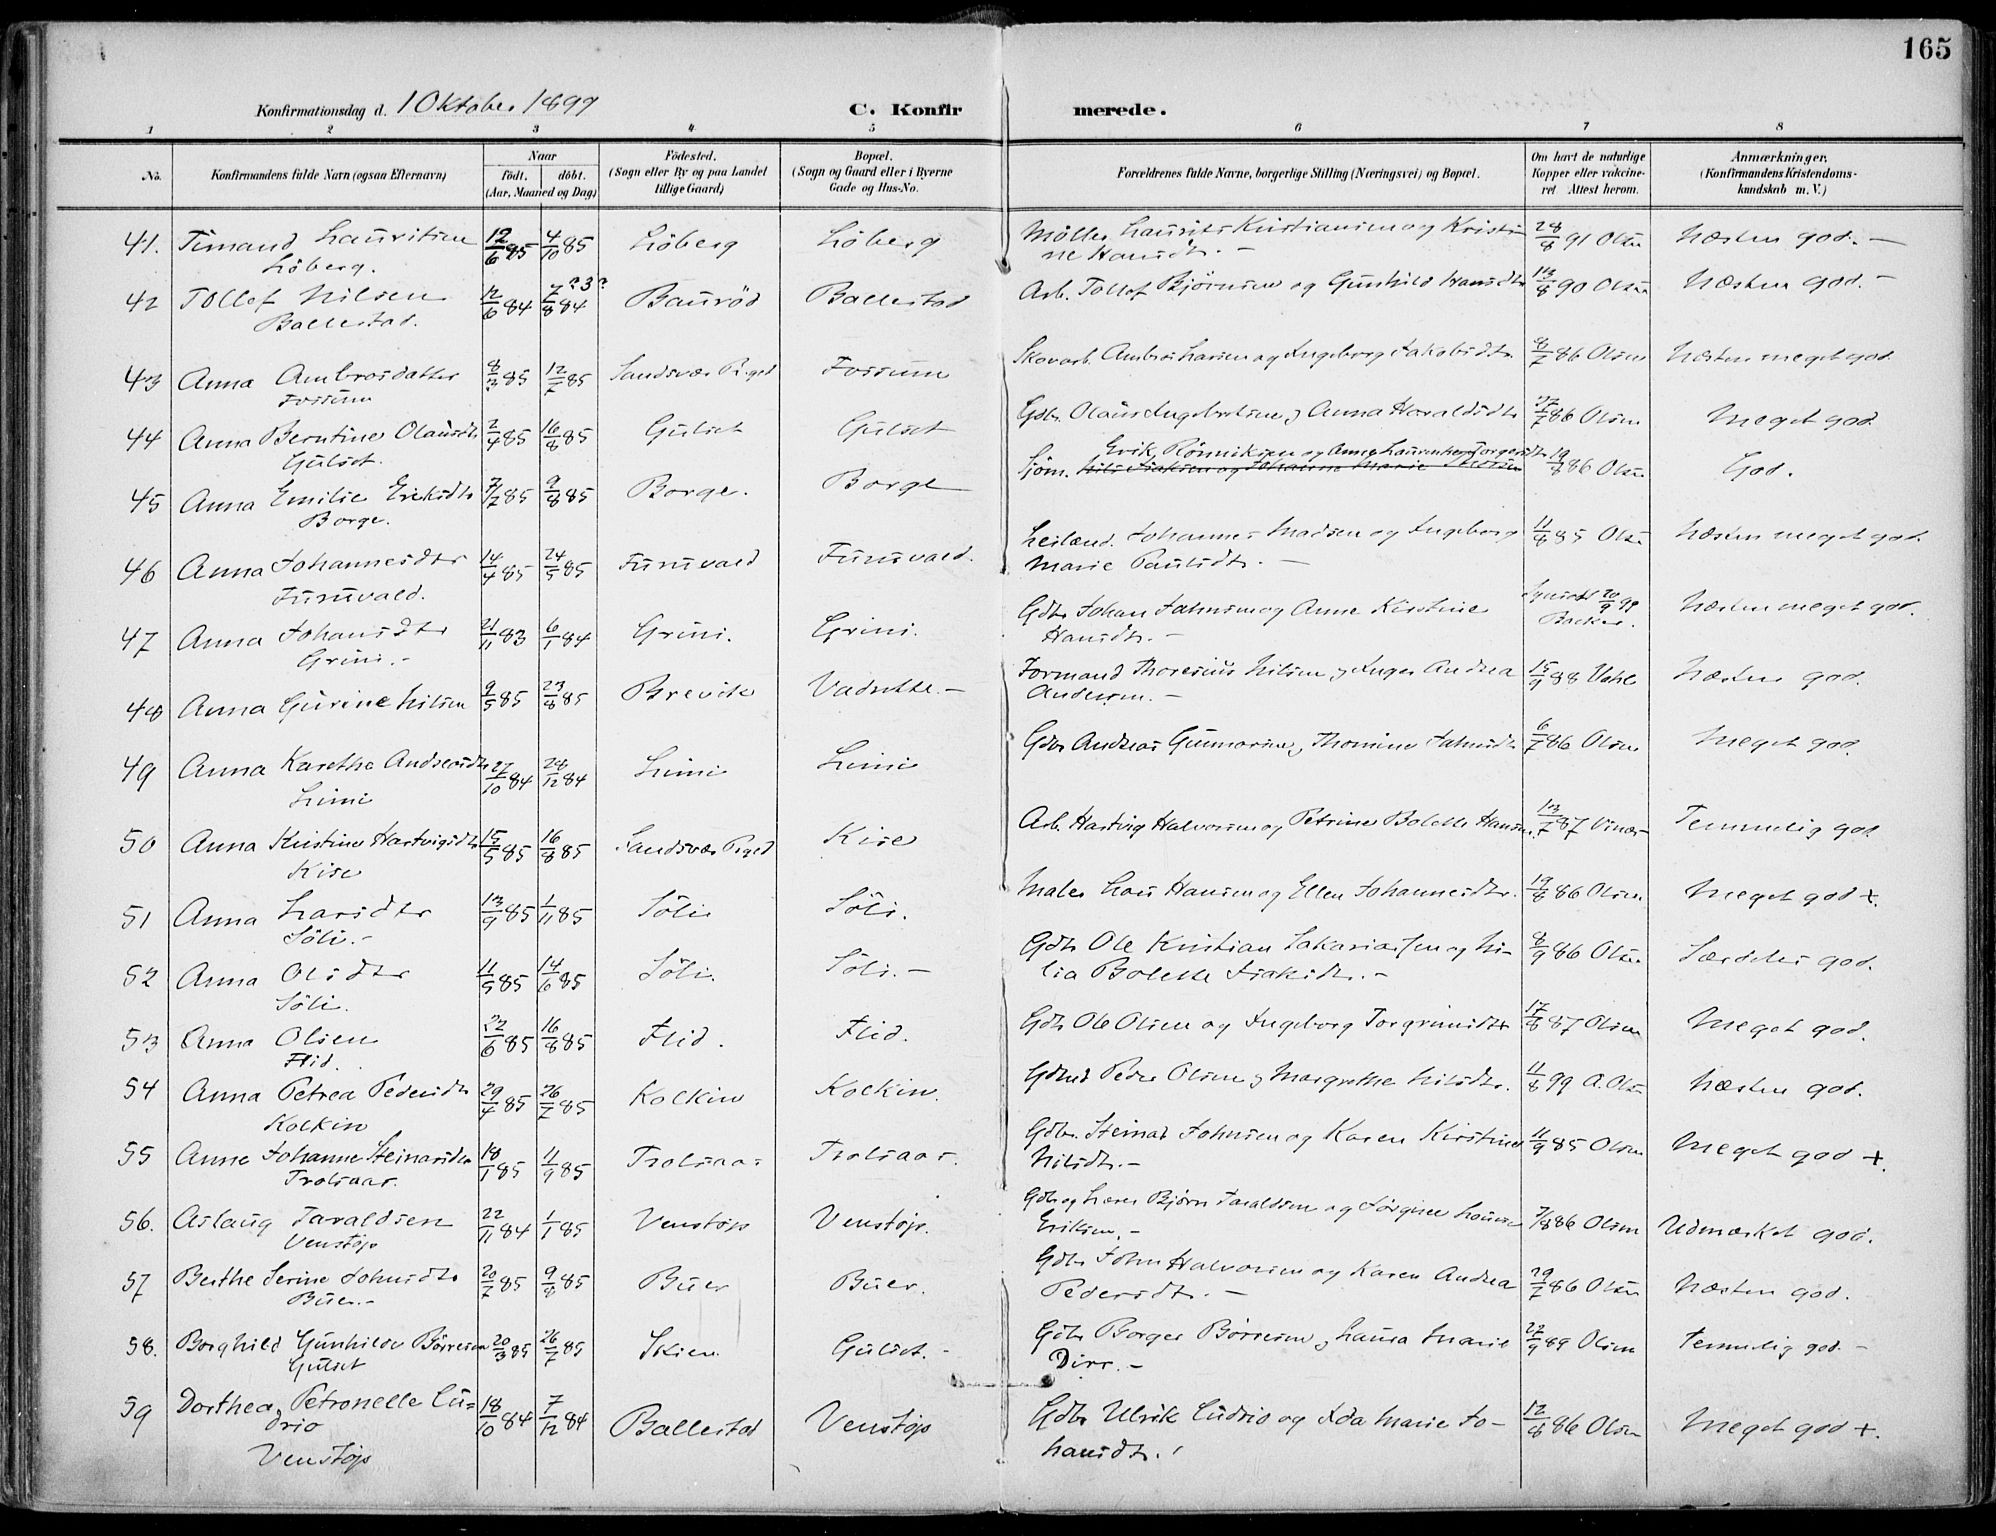 165
Konfirmationsdag d. 1 Oktober 1899 C. Konfir merede.
1 2 3 4 5 6 7 8
No. Konfirmandens fulde Navn (ogsaa Efternavn) Naar födt. döbt. (Aar, Maaned og Dag) Födested. (Sogn eller By og paa Landet tillige Gaard) Bopæl. (Sogn og Gaard eller i Byerne Gade og Hus-No. Forældrenes fulde Navne, borgerlige Stilling (Næringsvei) og Bopæl. Om havt de naturlige Kopper eller vakcineret Attest herom. Anmærkninger. (Konfirmandens Kristendomskundskab m. V.)
41. Timand Lauritsen 12/6 85 4/10 85 Löberg Löberg Möller Laurits Kristiansen og Kristi- 28/8 91 Olsen Næsten god. –
Löberg. ne Hansdtr. –
42 Tollef Nilsen 12/6 84 7/8 84 ?3? Bauröd Ballestad Arb. Tollef Bjørnsen og Gunhild Hansdtr 13/8 90 Olsen Næsten god. –
Ballestad.
43 Anna Ambrosdatter 8/2 85 12/7 85 Sandsvær Pr.gd Fossum Skovarb. Ambros Larsen og Ingeborg Jakobsdtr. 8/7 86 Olsen Næsten meget god.
Fossum
44 Anna Berntine Olausdtr 2/4 85 16/8 85 Gulset Gulset Gdbr. Olaus Ingebretsen, Anna Haraldsdtr 27/7 86 Olsen Meget god.
Gulset.
Erik Rönniksen og Anne Laurentze Torgersdtr
45 Anna Emilie Eriksdtr 7/7 85 9/8 85 Borge. Borge Sjöm. Nils Isaksen og Johanne Marie Thorsen 19/8 86 Olsen God.
Borge.
46 Anna Johannesdtr 14/4 85 24/5 85 Furuvald Furuvald. Leilænd. Johannes Madsen og Ingeborg 11/8 85 Olsen Næsten meget god.
Furuvald. Marie Paulsdtr. –
47 Anna Johansdtr 21/11 83 6/1 84 Grini. Grini. Gdbr Johan Jahnsen og Anne Kirstine 20/9 99 Backer. Næsten meget god.
Grini. – Hansdtr. –
48 Anna Gurine Nilsen 9/5 85 23/8 85 Brevik Vadrette. – Formand Thoresius Nilsen, Inger Andrea 15/9 88 Vahl Næsten god.
Andersen. –
49 Anna Karethe Andreasdtr 27/10 84 28/12 84 Limi Limi Gdbr Andreas Gunnarsen, Thomine Jahnsdtr 6/7 86 Olsen Meget god.
Limi
50 Anna Kristine Hartvigsdtr 15/5 85 16/8 85 Sandsvær Prgd Kise Arb. Hartvig Halvorsen og Petrine Bolette Hansen. 13/7 87 Temmelig god.
Kise
51 Anna Larsdtr 13/9 85 1/11 85 Söli Söli. Maler Lars Hansen og Ellen Johannesdtr. 19/8 86 Olsen Meget god +.
Söli. –
52 Anna Olsdtr 11/5 85 14/6 85 Söli. Söli. – Gdbr Ole Kristian Sakariassen og Ni- 8/9 86 Olsen Særdeles god.
Söli. lia Bolette Isaksdtr. –
53 Anna Olsen 22/6 85 16/8 85 Flid. Flid. Gdbr Ole Olsen og Ingeborg Torgrimsdtr 17/8 87 Olsen Meget god.
Flid.
54 Anna Petrea Pedersdtr 29/4 85 26/7 85 Kolkin Kolkin. Gdmd Peder Olsen, Margrethe Nilsdtr. 11/8 99 A. Olsen Næsten god.
Kolkin
55 Anne Johanne Steinarsdtr 18/1 85 11/9 85 Trolsaas Trolsaas. Gdbr. Steinar Johnsen og Karen Kirstine 11/9 85 Olsen Meget god +.
Trolsaas. Nilsdtr. –
56. Aslaug Taraldsen 22/11 84 1/1 85 Venstöp Venstöp. Gdbr og Lærer Bjørn Taraldsen og Jörgine Louise 7/8 86 Olsen Udmærket god.
Venstöp Eriksen. –
57 Berthe Serine Johnsdtr 20/7 85 9/8 85 Buer Buer. Gdbr John Halvorsen og Karen Andrea 29/7 86 Olsen Næsten god.
Buer. – Pedersdtr. –
58. Borghild Gunhilde Börresen 20/3 85 26/7 85 Skien Gulset. – Gdbr Borger Börresen, Laura Marie 22/9 89 Olsen Temmelig god. –
Gulset Dirr. –
59 Dorthea Petronelle Cu= 18/10 84 7/12 84 Ballestad Venstöp Gdbr Ulrik Cudrio og Ida Marie Jo- 12/8 86 Olsen Meget god +.
drio hansdtr.
Venstöp